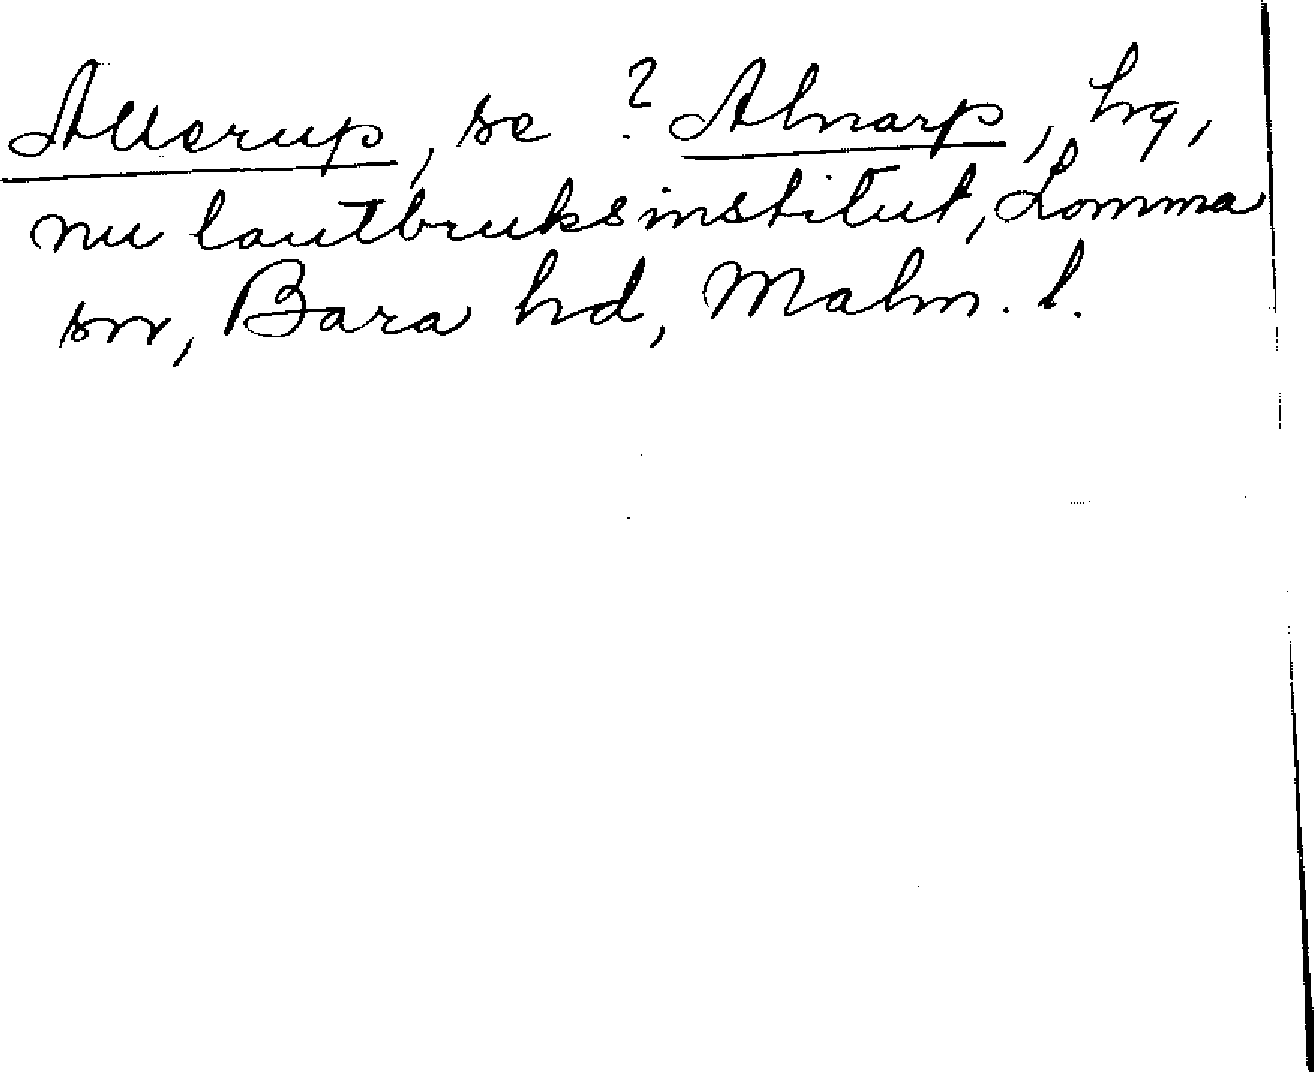 Allerup, se ? Alnarp, hg,
nu lantbruksinstitut, Lomma
sn, Bara hd, Malm. l.